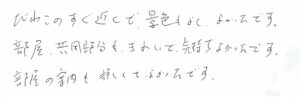 びわこのすぐ近くで、景色もよく、よかったです。
部屋、共用部分も、きれいで、気持ちよかったです。
部屋の案内も 詳しくて よかったです。